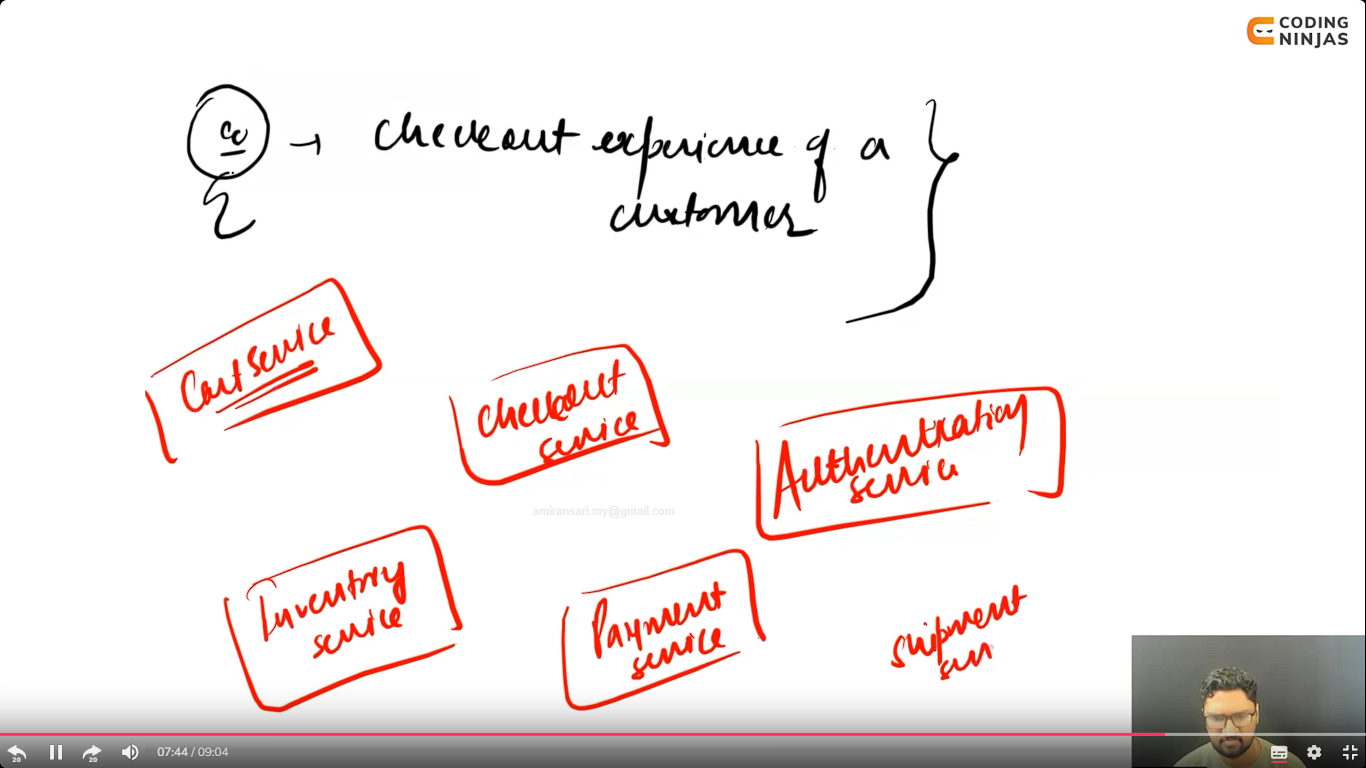 CODING
NINJAS
→ Checkout experience of a
customer
Cart service
Checkout
service
Authentication
service
amiransari.my@gmail.com
Inventory
service
Payment
service
Shipment
20
20
07:44 / 09:04